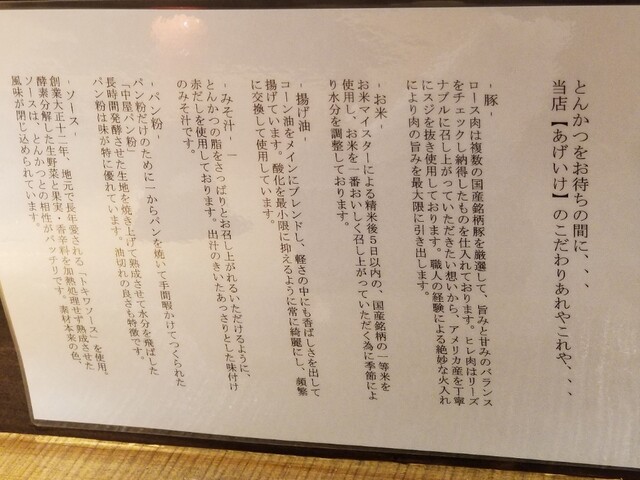 とんかつをお待ちの間に、、、
当店【あげいけ】のこだわりあれやこれや、、、
- 豚 -
ロース肉は複数の国産銘柄豚を厳選して、旨みと甘みのバランス
をチェックし納得したものを仕入れております。ヒレ肉はリーズ
ナブルに召し上がっていただきたい想いから、アメリカ産を丁寧
にスジを抜き使用しております。職人の経験による絶妙な火入れ
により肉の旨みを最大限に引き出します。
- お米 -
お米マイスターによる精米後5日以内の、国産銘柄の一等米を
使用し、お米を一番おいしく召し上がっていただく為に季節によ
り水分を調整しております。
- 揚げ油 -
コーン油をメインにブレンドし、軽さの中にも香ばしさを出して
揚げています。酸化を最小限に抑えるように常に綺麗にし、頻繁
に交換して使用しています。
- みそ汁 -
とんかつの脂をさっぱりとお召し上がれるいただけるように、
赤だしを使用しております。出汁のきいたあっさりとした味付け
のみそ汁です。
- パン粉 -
パン粉だけのために一からパンを焼いて手間暇かけてつくられた
「中屋パン粉」
長時間発酵させた生地を焼き上げて熟成させて水分を飛ばした
パン粉は味が特に優れています。油切れの良さも特徴です。
- ソース -
創業大正十二年、地元で長年愛される「トキワソース」を使用。
酵素分解した生野菜と果実・香辛料を加熱処理せず熟成させた
ソースは、とんかつとの相性がバッチリです。素材本来の色、
風味が閉じ込められています。